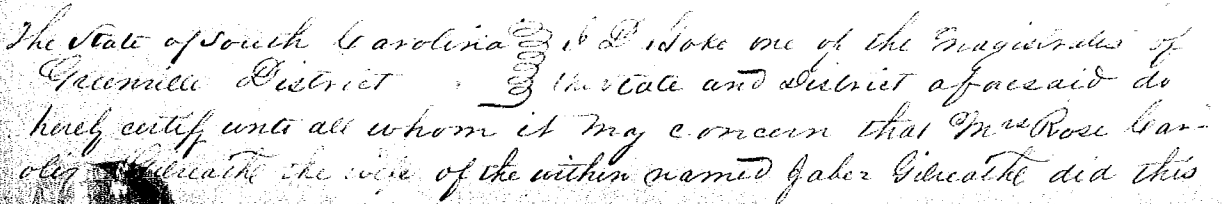 The State of South Carolina I D Hoke one of the Magistrates of
Greenville District the State and District aforesaid do
herely certify unto all whom it may concern that Mrs Rose Car-
olin Gilreathe the wife of the within named Jaber Gilreathe did this